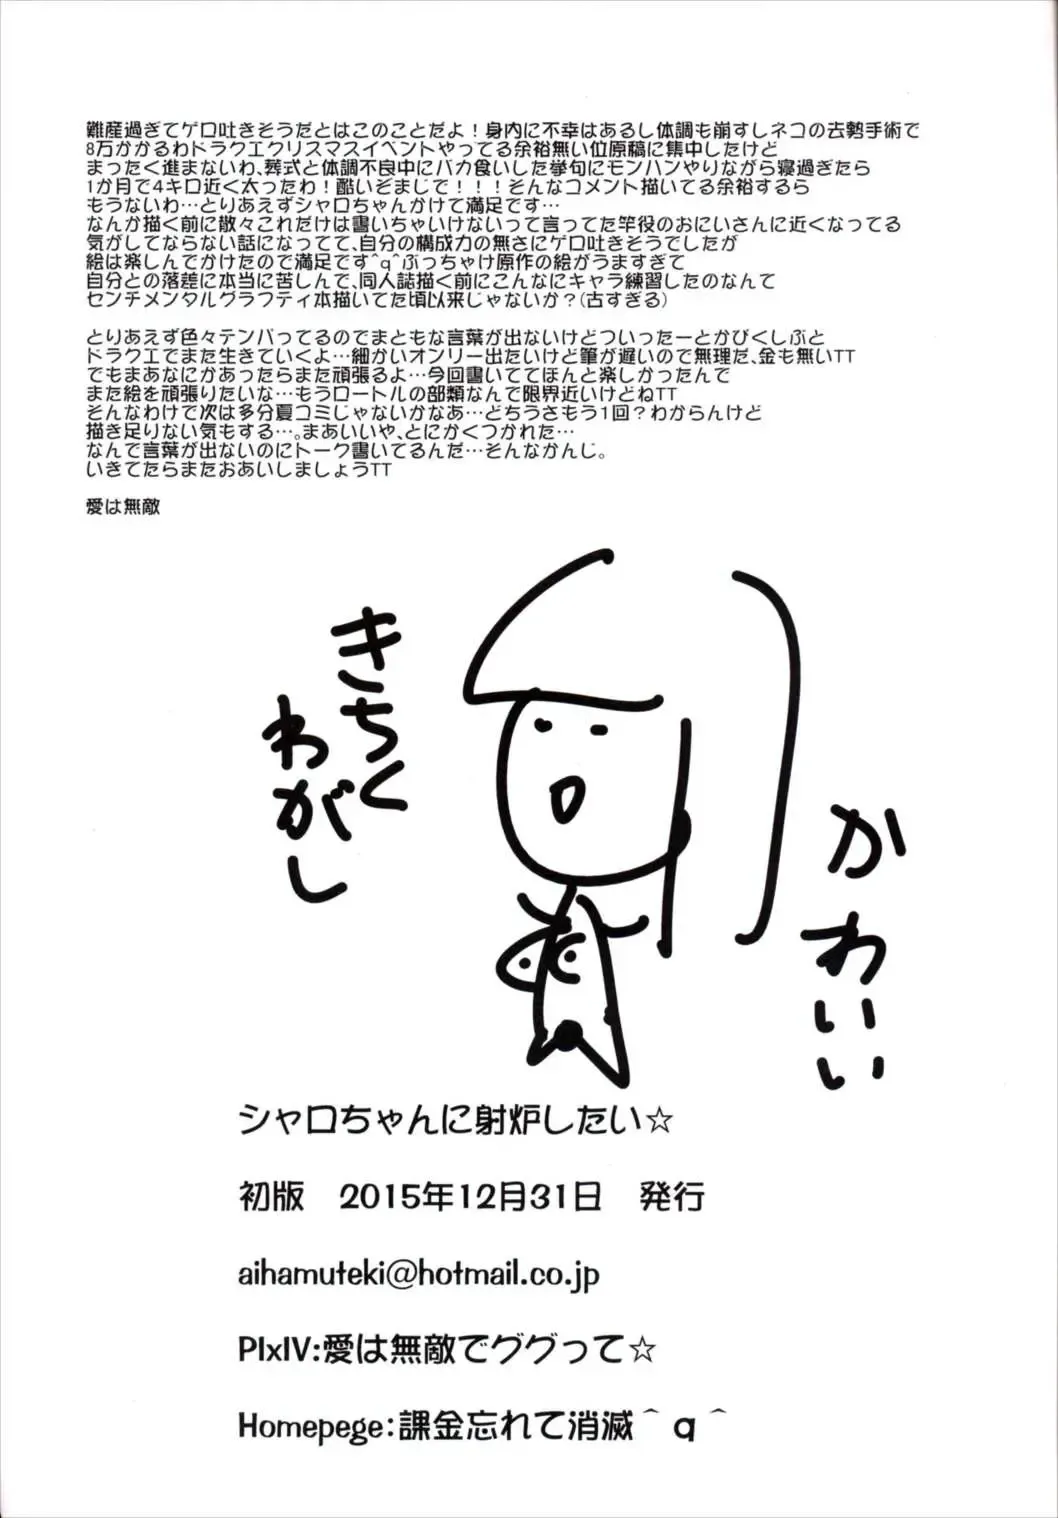 難産過ぎてゲロ吐きそうだとはこのことだよ！身内に不幸はあるし体調も崩すしネコの去勢手術で
8万かかるわドラクエクリスマスイベントやってる余裕無い位原稿に集中したけど
まったく進まないわ、葬式と体調不良中にバカ食いした挙句にモンハンやりながら寝過ぎたら
1か月で4キロ近く太ったわ！酷いぞまじで！！！そんなコメント描いてる余裕するら
もうないわ…とりあえずシャロちゃんかけて満足です…
なんか描く前に散々これだけは書いちゃいけないって言ってた竿役のおにいさんに近くなってる
気がしてならない話になってて、自分の構成力の無さにゲロ吐きそうでしたが
絵は楽しんでかけたので満足です^q^ぶっちゃけ原作の絵がうますぎて
自分との落差に本当に苦しんで、同人誌描く前にこんなにキャラ練習したのなんて
センチメンタルグラフティ本描いてた頃以来じゃないか？(古すぎる)
とりあえず色々テンパってるのでまともな言葉が出ないけどついったーとかぴくしぶと
ドラクエでまた生きていくよ…細かいオンリー出たいけど筆が遅いので無理だ、金も無いTT
でもまあなにかあったらまた頑張るよ…今回書いててほんと楽しかったんで
また絵を頑張りたいな…もうロートルの部類なんで限界近いけどねTT
そんなわけで次は多分夏コミじゃないかなあ…どちうさもう1回？わからんけど
描き足りない気もする…。まあいいや、とにかくつかれた…
なんで言葉が出ないのにトーク書いてるんだ…そんなかんじ。
いきてたらまたおあいしましょうTT
愛は無敵
きちく
わがし
かわいい
シャロちゃんに射炉したい☆
初版　2015年12月31日　発行
aihamuteki@hotmail.co.jp
PIxIV:愛は無敵でググって☆
Homepege:課金忘れて消滅＾q＾